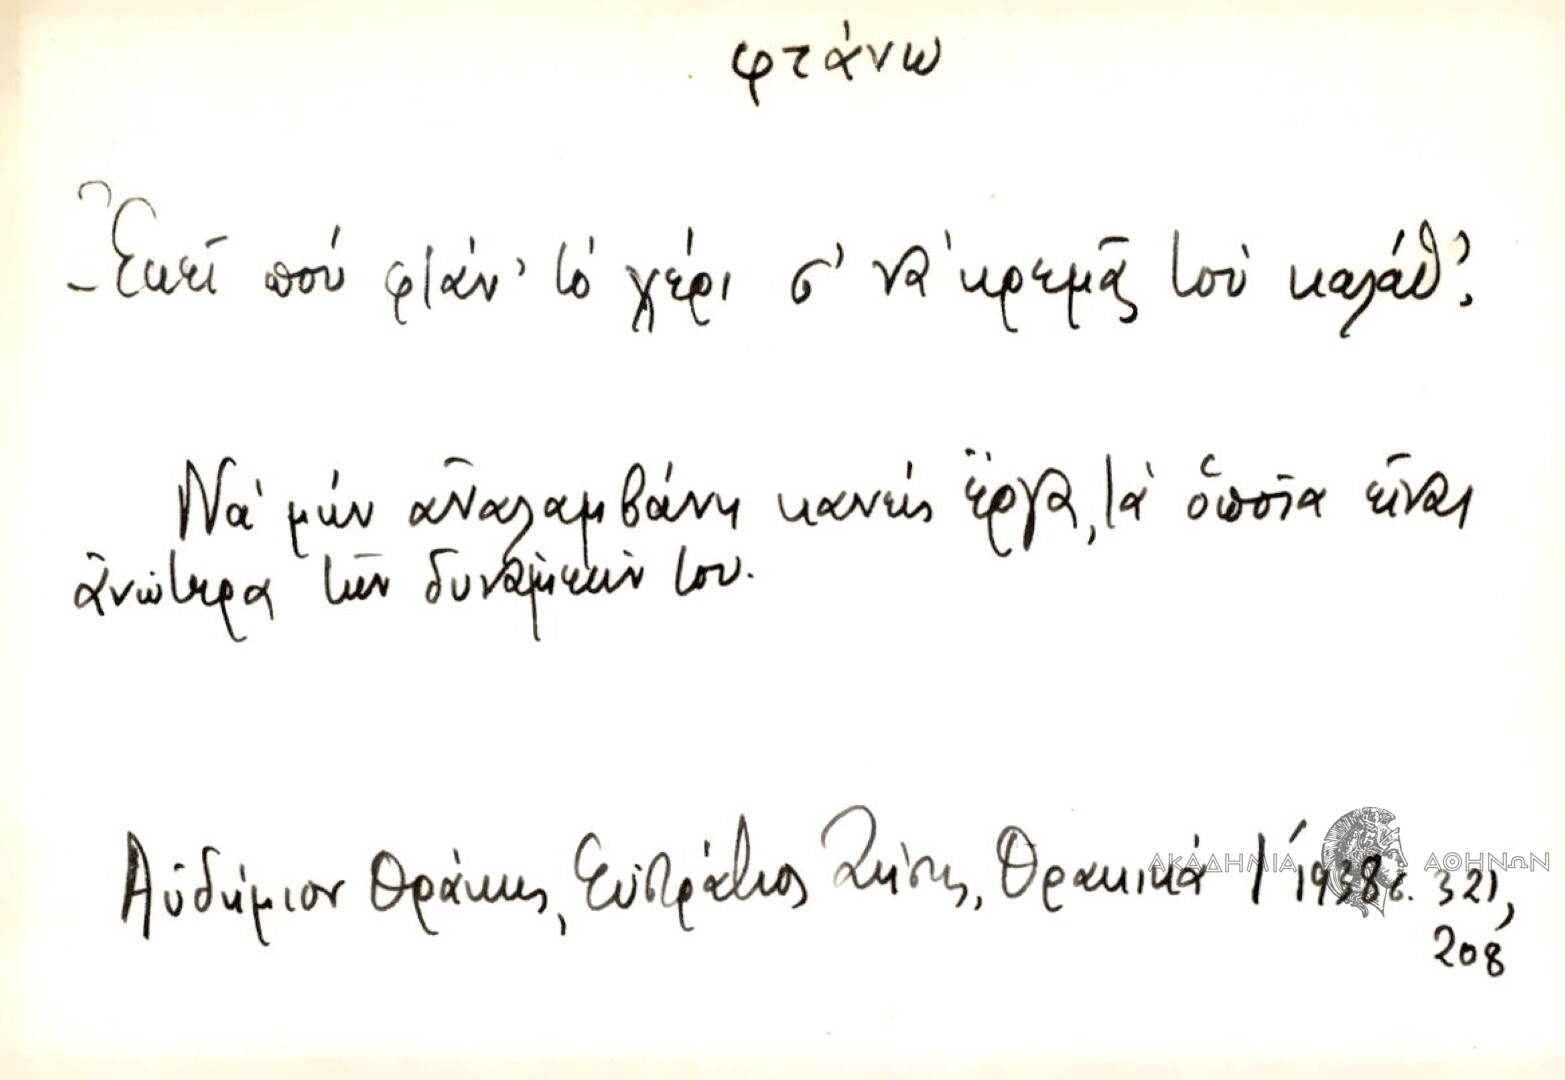 φτάνω
- Ἐκεῖ ποὺ φτάν' τὸ χέρι σ' νὰ κρεμᾷς τοὺ καλάθ'.
Νὰ μὴν ἀναλαμβάνῃ κανεὶς ἔργα, τὰ ὁποῖα εἶναι
ἀνώτερα τῶν δυνάμεών του.
Αὐδήμιον Θράκης, Εὐστράτιος Ζήσης, Θρακικά 1938 σ. 321,
208
ΑΚΑΔΗΜΙΑ ΑΘΗΝΩΝ